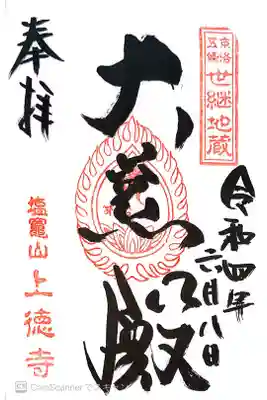 京洛
五條
世継地蔵
令和四年
六月八日
大慈殿
奉拝
塩竈山上徳寺
CamScanner でスキャン